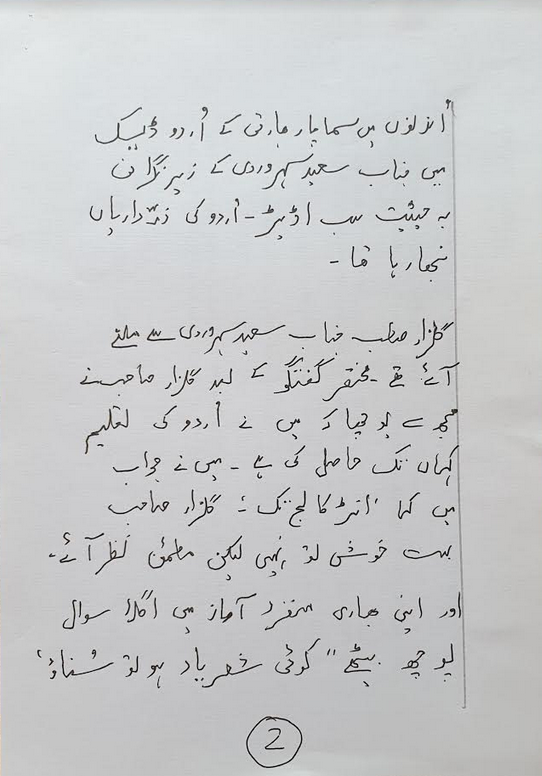 اُن دنوں میں سماچار بھارتی کے اُردو ڈیسک
میں جناب سعید سہروردی کے زیر نگرانی
بہ حیثیت سب اڈیٹر - اُردو کی ذمّہ داریاں
نبھا رہا تھا -
گلزار صاحب جناب سعید سہروردی سے ملنے
آئے تھے - مختصر گفتگو کے بعد گلزار صاحب نے
مجھ سے پوچھا کہ میں نے اُردو کی تعلیم
کہاں تک حاصل کی ہے - میں نے جواب
میں کہا 'انٹر کالج تک' گلزار صاحب
بہت خوش تو نہیں لیکن مطمئن نظر آئے -
اور اپنی بھاری منفرد آواز میں اگلا سوال
پوچھ بیٹھے "کوئی شعر یاد ہو تو سُناؤ'
2